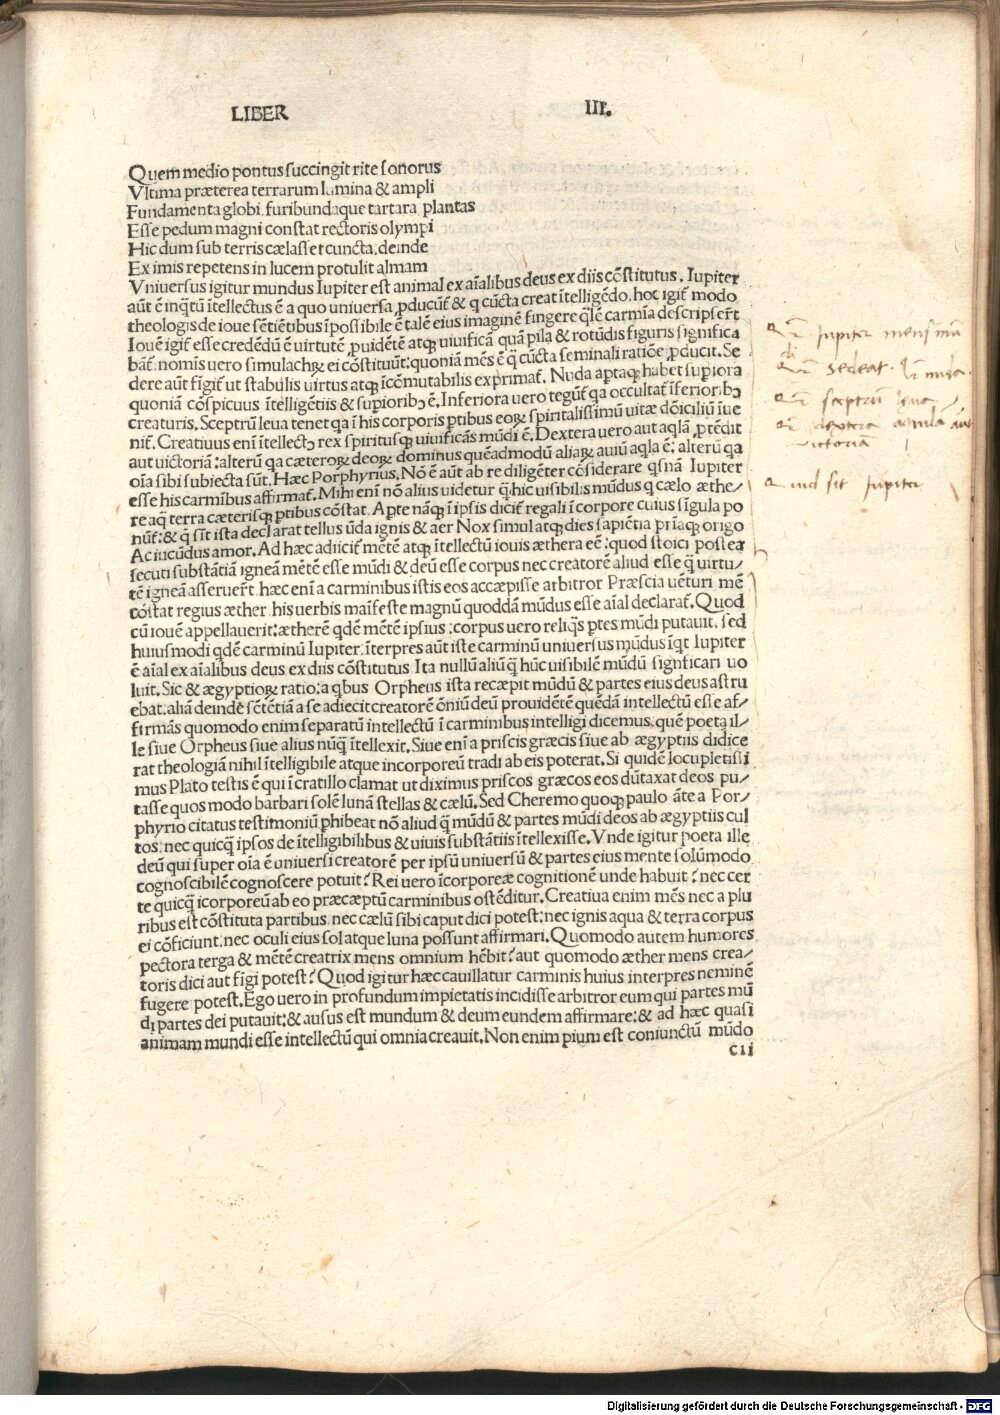 LIBER III.
Quem medio pontus succingit rite sonorus
Vltima præterea terrarum lumina & ampli
Fundamenta globi furibundaque tartara plantas
Esse pedum magni constat rectoris olympi
Hic dum sub terris cælasset cuncta, deinde
Ex imis repetens in lucem protulit almam
Vniuersus igitur mundus Iupiter est animal ex aīalibus deus ex diis cōstitutus. Iupiter
aūt ē inq̄tū ītellectus ē a quo uniuersa ꝓducūt̄ & q cūcta creat ītelligēdo. hoc igit̄ modo
theologis de ioue sētiētibus īpossibile ē talē eius imaginē fingere q̄lē carmīa descripserūt
Iouē igit̄ esse credēdū ē uirtutē ꝓuidētē atqꝫ uiuificā quā pila & rotūdis figuris significa
bāt: nomīs uero simulachrꝝ ei cōstituūt: quoniā mēs ē q̄ cūcta seminali ratiōe ꝓducit. Se
dere aūt fīgit̄ ut stabilis uirtus atqꝫ īcōmutabilis exprimat̄. Nuda aptaqꝫ habet supīora
quoniā cōspicuus ītelligētiis & supioribꝰ ē. Inferiora uero tegūt̄ qa occultat̄ īferioribꝰ
creaturis. Sceptrū leua tenet qa ī his corporis ptibus eoꝝ spiritalissimū uitæ dōiciliū īue
nit̄. Creatiuus enī ītellectꝰ rex spiritusqꝫ uiuificās mūdi ē. Dextera uero aut aqlā ꝓtēdit
aut uictoriā: alterū qa cæteroꝝ deoꝝ dominus quēadmodū aliaꝝ auiū aqla ē: alterū qa
oīa sibi subiecta sūt. Hæc Porphyrius. Nō ē aūt ab re diligēter cōsiderare qsnā Iupiter
esse his carmībus affirmat̄. Mihi enī nō alius uidetur q̄ hic uisibilis mūdus q cælo æthe/
re aq̄ terra cæterisqꝫ ptibus cōstat. Apte nāqꝫ ī ipsis dicit̄ regali ī corpore cuius sīgula po
nūt̄: & q̄ sīt ista declarat tellus ūda ignis & aer Nox simul atqꝫ dies sapiētia prīaqꝫ origo
Ac iucūdus amor. Ad hæc adiicit̄ mētē atqꝫ ītellectū iouis æthera eē: quod stoici postea
secuti substātiā igneā mētē esse mūdi & deū esse corpus nec creatorē aliud esse q̄ uirtu/
tē igneā asseruer̄t. hæc enī a carminibus istis eos accæpisse arbitror Præscia uēturi mē
cōstat regius æther. his uerbis maīfeste magnū quoddā mūdus esse aīal declarat̄. Quod
cū iouē appellauerit: ætherē qdē mētē ipsius: corpus uero reliqs̄ ptes mūdi putauit. sed
huiusmodi qdē carminū Iupiter: īterpres aūt iste carminū uniuersus mūdus īqt Iupiter
ē aīal ex aīalibus deus ex diis cōstitutus Ita nullū aliū q̄ hūc uisibilē mūdū significari uo
luit. Sic & ægyptioꝝ ratio: a qbus Orpheus ista recæpit mūdū & partes eius deus astru
ebat: aliā deinde sētētiā a se adiecit creatorē ōniū deū prouidētē quēdā intellectū esse af/
firmās quomodo enim separatū intellectū ī carminibus intelligi dicemus. quē poeta il/
le siue Orpheus siue alius nūq̄ ītellexit. Siue enī a priscis græcis siue ab ægyptiis didice
rat theologiā nihil ītelligibile atque incorporeū tradi ab eis poterat. Si quidē locupletissi
mus Plato testis ē qui ī cratillo clamat ut diximus priscos græcos eos dūtaxat deos pu/
tasse quos modo barbari solē lunā stellas & cælū. Sed Cheremo quoqꝫ paulo āte a Por/
phyrio citatus testimoniū phibeat nō aliud q̄ mūdū & partes mūdi deos ab ægyptiis cul
tos: nec quicq̄ ipsos de ītelligibilibus & uiuis substātiis ītellexisse. Vnde igitur poeta ille
deū qui super oīa ē uniuersi creatorē per ipsū uniuersū & partes eius mente solūmodo
cognoscibilē cognoscere potuit? Rei uero īcorporeæ cognitionē unde habuit? nec cer
te quicq̄ icorporeū ab eo præcæptū carminibus ostēditur. Creatiua enim mēs nec a plu
ribus est cōstituta partibus. nec cælū sibi caput dici potest: nec ignis aqua & terra corpus
ei cōficiunt. nec oculi eius sol atque luna possunt affirmari. Quomodo autem humeros
pectora terga & mētē creatrix mens omnium hēbit? aut quomodo æther mens crea/
toris dici aut fīgi potest? Quod igitur hæc cauillatur carminis huius interpres neminē
fugere potest. Ego uero in profundum impietatis incidisse arbitror eum qui partes mū
di partes dei putauit: & ausus est mundum & deum eundem affirmare: & ad hæc quasi
animam mundi esse intellectū qui omnia creauit. Non enim pium est coniunctū mūdo
cii
Jupiter mens mūdi
sedeat.
sceptrū
dextera aquila aut
victoriam
quid sit Jupiter
Digitalisierung gefördert durch die Deutsche Forschungsgemeinschaft - DFG